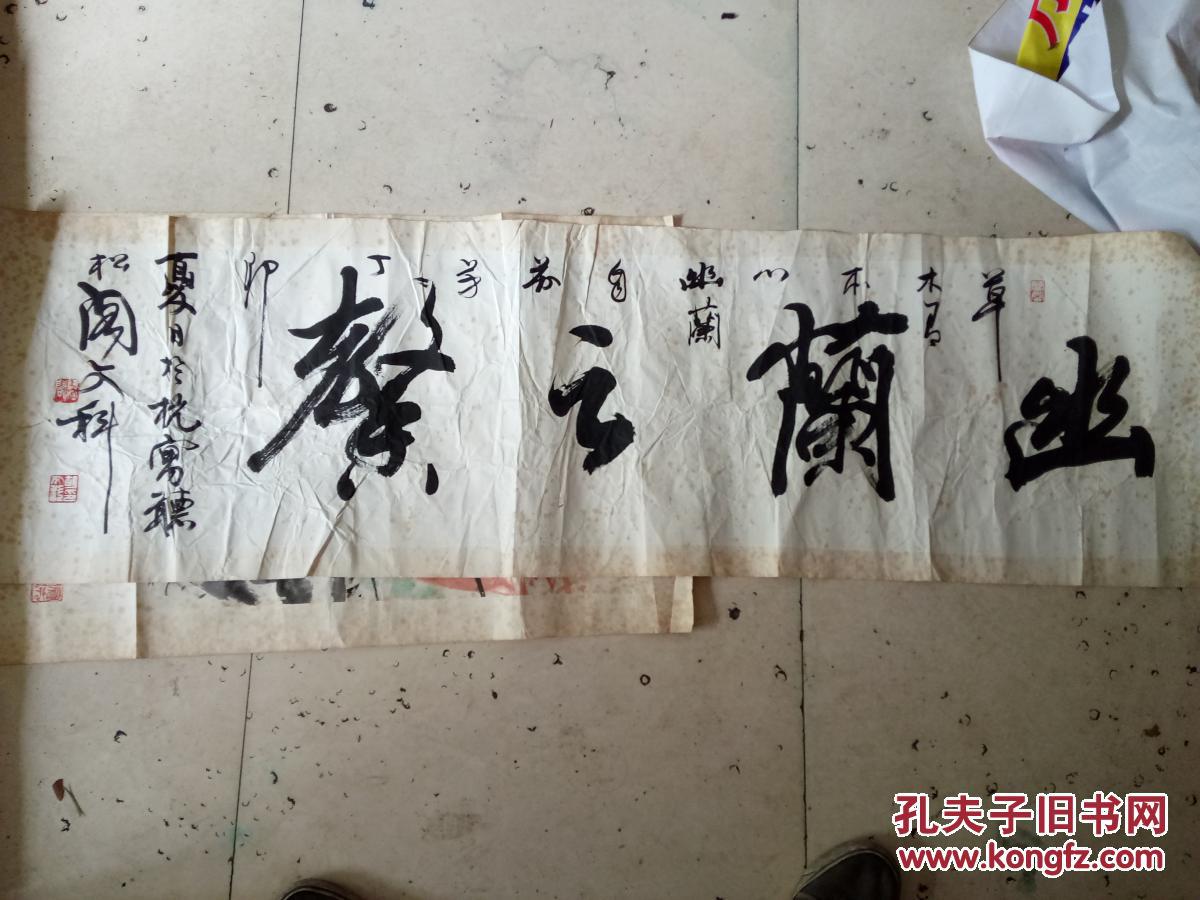 幽蘭之馨
草
木
本
心
幽蘭
自
芬
芳
丁
卯
夏日於杭寓聽
松閣文科
孔夫子旧书网
www.kongfz.com